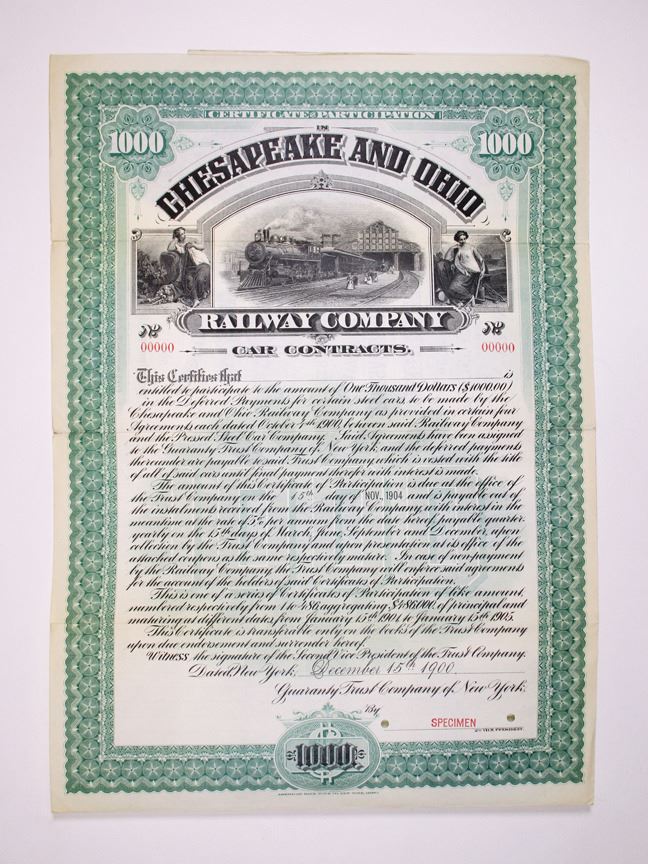 CERTIFICATE OF PARTICIPATION
IN
1000 1000
CHESAPEAKE AND OHIO
RAILWAY COMPANY
No No
00000 00000
CAR CONTRACTS.
This Certifies that is
entitled to participate to the amount of One Thousand Dollars ($1000.00)
in the Deferred Payments for certain steel cars to be made by the
Chesapeake and Ohio Railway Company as provided in certain four
Agreements each dated October 4th 1900, between said Railway Company
and the Pressed Steel Car Company. Said Agreements have been assigned
to the Guaranty Trust Company of New York and the deferred payments
thereunder are payable to said Trust Company which is vested with the title
of all of said cars until final payment therefor with interest is made.
The amount of this Certificate of Participation is due at the office of
the Trust Company on the 15th day of NOV. 1904 and is payable out of
the instalments received from the Railway Company, with interest in the
meantime at the rate of 5% per annum from the date hereof, payable quarter
yearly on the 15th days of March, June, September and December, upon
collection by the Trust Company and upon presentation at its office of the
attached coupons as the same respectively mature. In case of nonpayment
by the Railway Company, the Trust Company will enforce said agreements
for the account of the holders of said Certificates of Participation.
This is one of a series of Certificates of Participation of like amount,
numbered respectively from 1 to 486 aggregating $486000. of principal and
maturing at different dates from January 15th 1901, to January 15th 1905.
This Certificate is transferable only on the books of the Trust Company
upon due endorsement and surrender hereof.
Witness, the signature of the Second Vice President of the Trust Company.
Dated, New York, December 15th 1900.
Guaranty Trust Company of New York.
By
SPECIMEN
2ND VICE PRESIDENT.
1000